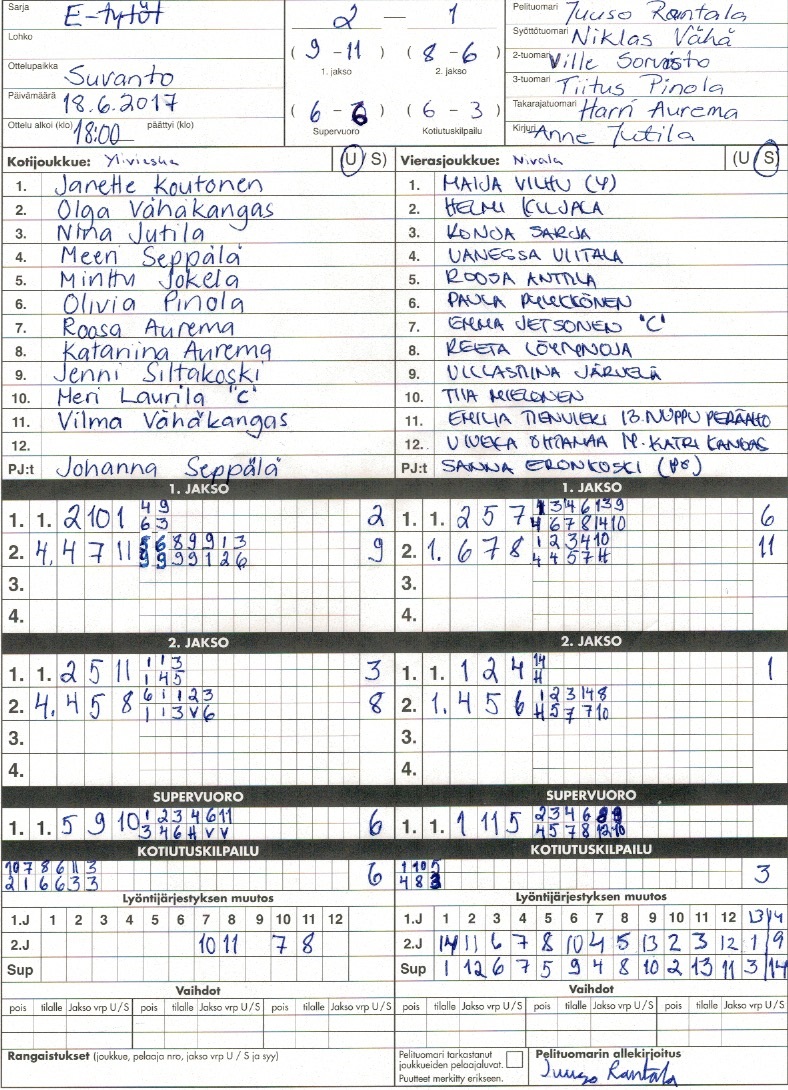 Sarja E-tytöt
Lohko
Ottelupaikka Suvanto
Päivämäärä 18.6.2017
Ottelu alkoi (klo) 18:00 päättyi (klo)
2 — 1
( 9 - 11 ) ( 8 - 6 )
1. jakso 2. jakso
( 6 - 6 ) ( 6 - 3 )
Supervuoro Kotiutuskilpailu
Pelituomari Juuso Rantala
Syöttötuomari Niklas Vähä
2-tuomari Ville Sorvisto
3-tuomari Tiitus Pinola
Takarajatuomari Harri Aurema
Kirjuri Anne Jutila
Kotijoukkue: Ylivieska (U / S)
1. Janette Koutonen
2. Olga Vähäkangas
3. Nina Jutila
4. Meeri Seppälä
5. Minttu Jokela
6. Olivia Pinola
7. Roosa Aurema
8. Katariina Aurema
9. Jenni Siltakoski
10. Meri Laurila "C"
11. Vilma Vähäkangas
12.
PJ:t Johanna Seppälä
Vierasjoukkue: Nivala (U / S)
1. MAIJA VILHU (Y)
2. HELMI KILJALA
3. RONJA SARJA
4. VANESSA ULITALA
5. ROOSA ANTTILA
6. PAULA PYLKKÖNEN
7. EMMA JETSONEN "C"
8. REETA LÖYTYNOJA
9. ULLASTIINA JÄRVELÄ
10. TIIA MIELONEN
11. EMILIA TIENVIERI 13. NUPPU PERÄAHO
12. VIIVEKA OHTAMAA 14. KATRI KANGAS
PJ:t SANNA ERONKOSKI
1. JAKSO
1. 1. 2 10 1 4 9 2
6 3
2. 4. 4 7 11 5 6 8 9 9 1 3 9
9 9 9 9 1 2 6
3.
4.
2. JAKSO
1. 1. 2 5 11 1 1 3 3
1 4 5
2. 4. 4 5 8 6 1 1 2 3 8
1 1 3 V 6
3.
4.
SUPERVUORO
1. 1. 5 9 10 1 2 3 4 6 11 6
3 4 6 H V V
KOTIUTUSKILPAILU
10 7 8 6 11 3 6
2 1 6 6 3 3
Lyöntijärjestyksen muutos
1.J 1 2 3 4 5 6 7 8 9 10 11 12
2.J 10 11 7 8
Sup
Vaihdot
pois tilalle Jakso vrp U / S pois tilalle Jakso vrp U / S pois tilalle Jakso vrp U / S
Rangaistukset (joukkue, pelaaja nro, jakso vrp U / S ja syy)
1. JAKSO
1. 1. 2 5 7 1 3 4 6 13 9 6
4 6 7 8 14 10
2. 1. 6 7 8 1 2 3 4 10 11
4 4 5 7 H
3.
4.
2. JAKSO
1. 1. 1 2 4 14 1
H
2. 1. 4 5 6 1 2 3 14 8
H 5 7 7 10
3.
4.
SUPERVUORO
1. 1. 1 11 5 2 3 4 6 8 9
4 5 7 8 12 10
KOTIUTUSKILPAILU
1 10 5 3
4 8 3
Lyöntijärjestyksen muutos
1.J 1 2 3 4 5 6 7 8 9 10 11 12 13 14
2.J 14 11 6 7 8 10 4 5 13 2 3 12 1 9
Sup 1 12 6 7 5 9 4 8 10 2 13 11 3 14
Vaihdot
pois tilalle Jakso vrp U / S pois tilalle Jakso vrp U / S pois tilalle Jakso vrp U / S
Pelituomari tarkastanut
joukkueiden pelaajaluvat.
Puutteet merkitty erikseen.
Pelituomarin allekirjoitus
Juuso Rantala